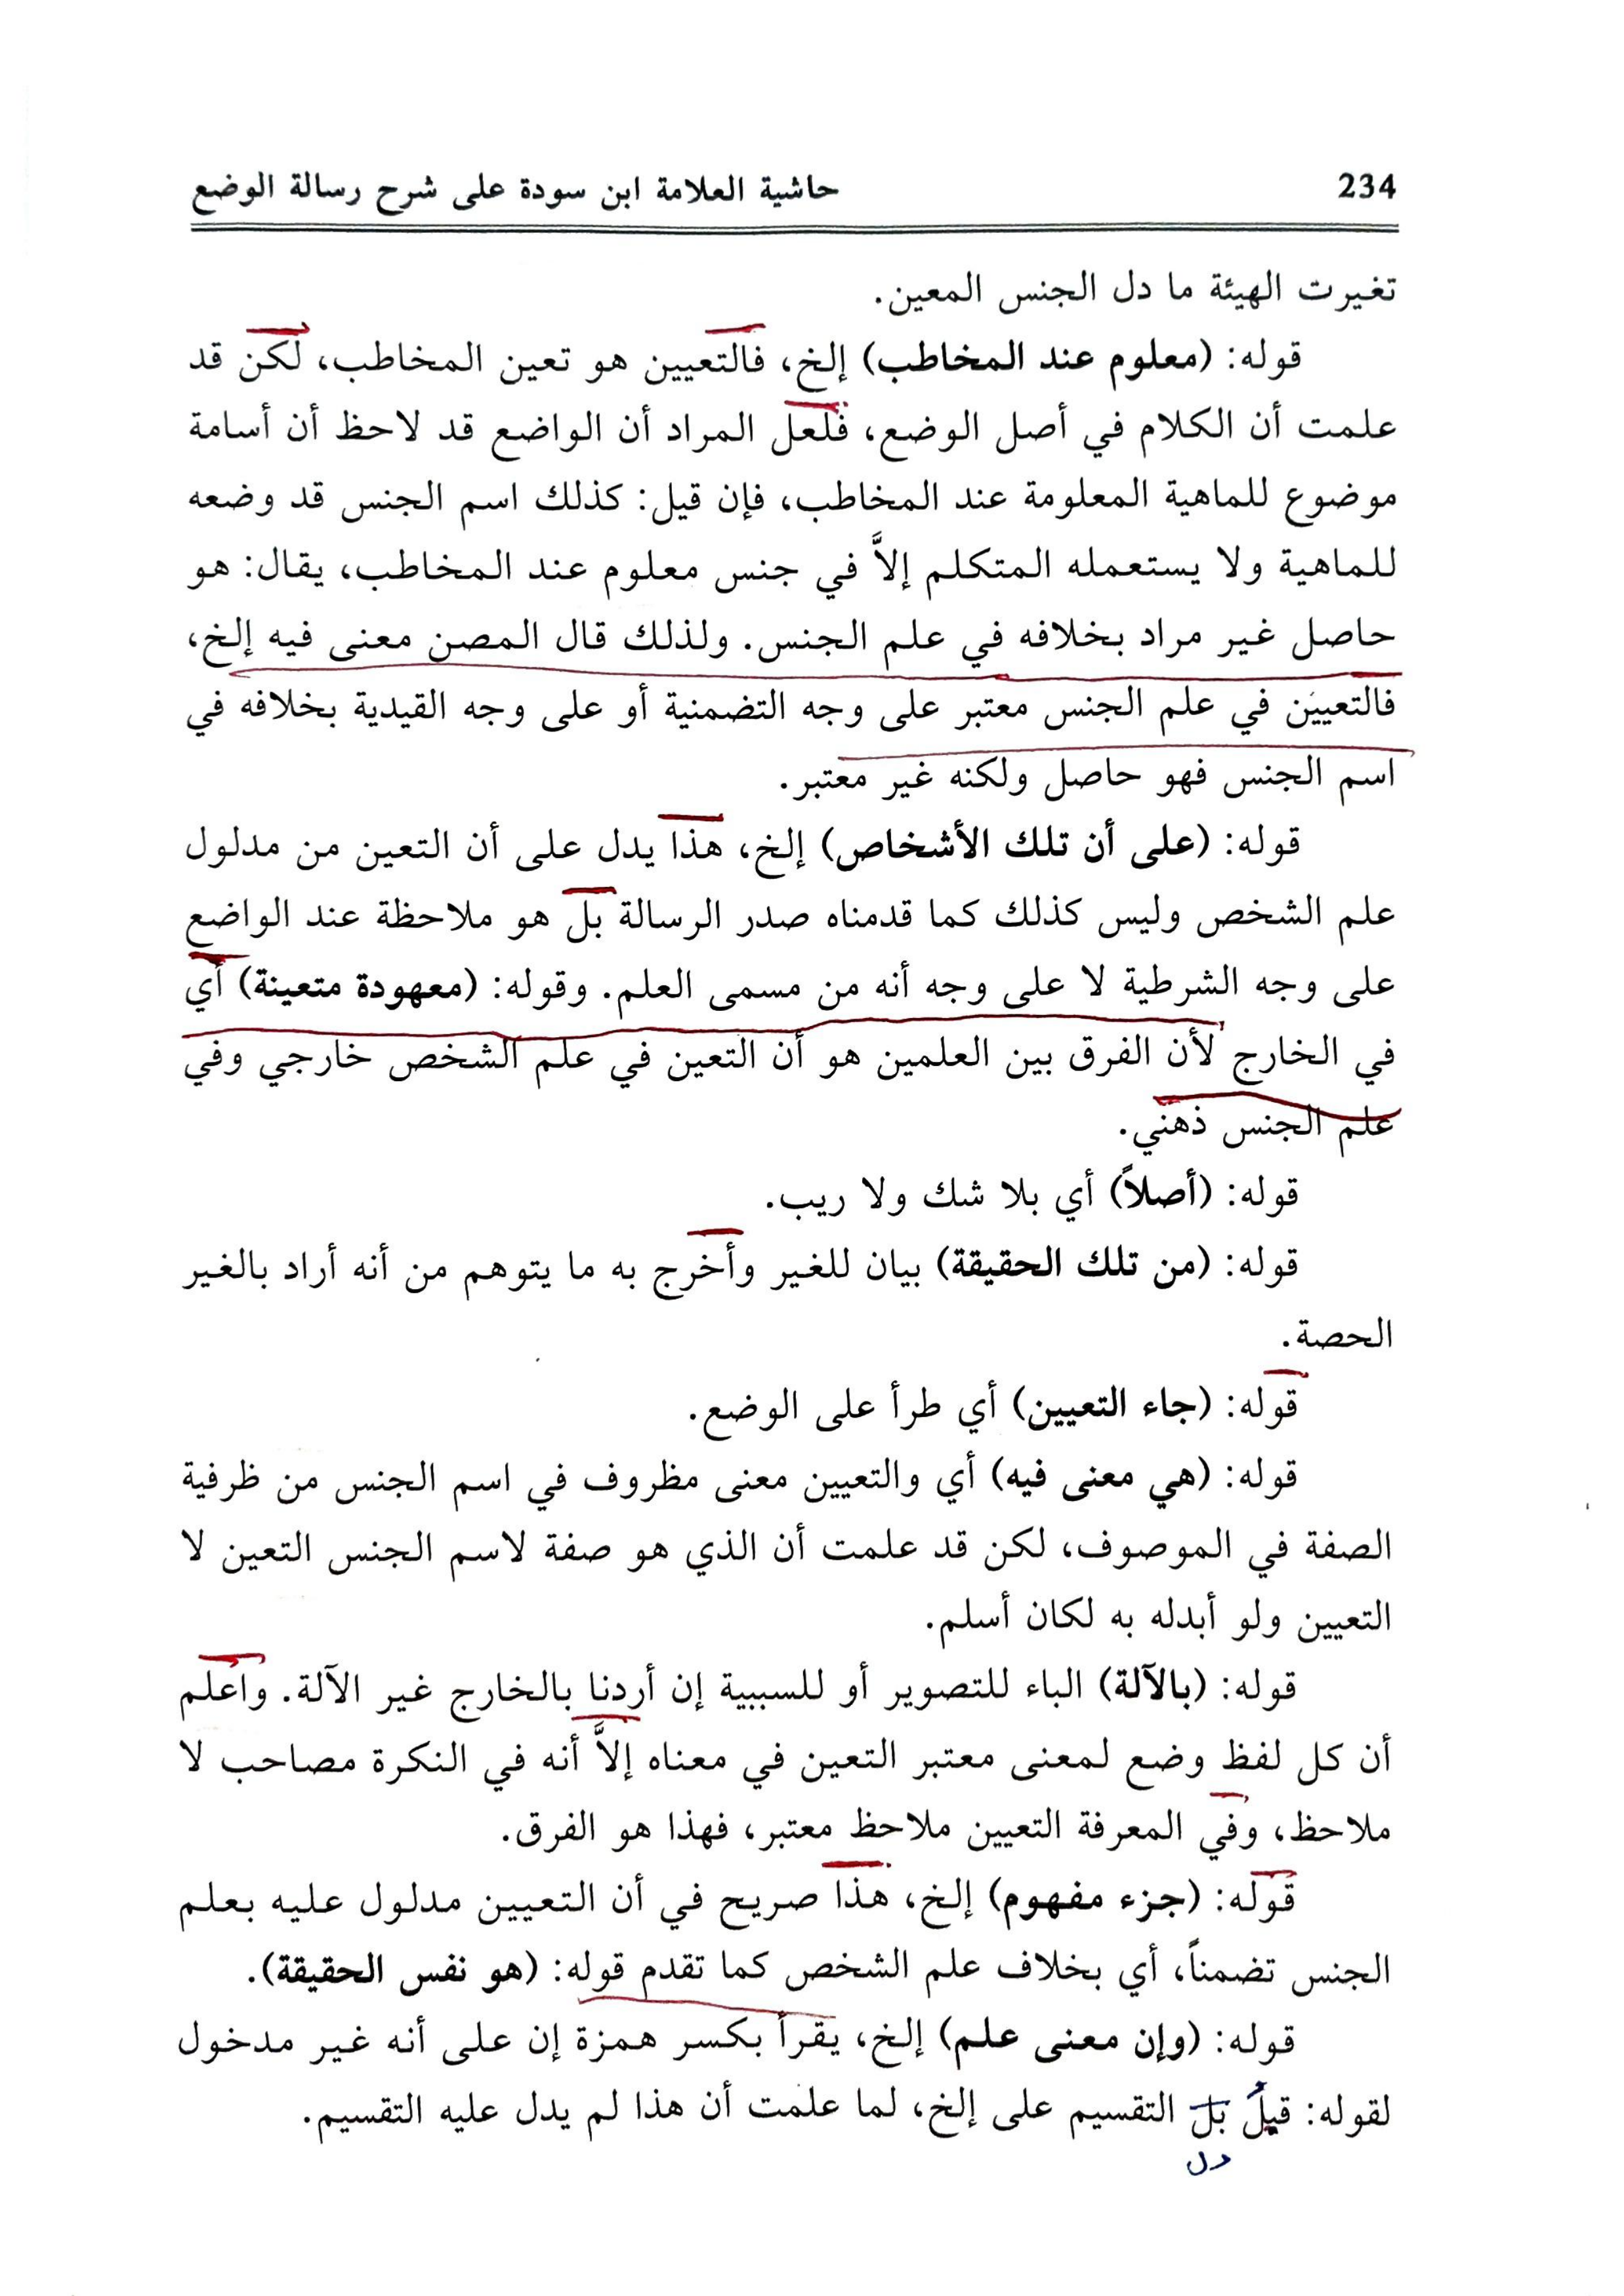 234 حاشية العلامة ابن سودة على شرح رسالة الوضع
تغيرت الهيئة ما دل الجنس المعين.
قوله: (معلوم عند المخاطب) إلخ، فالتعيين هو تعين المخاطب، لكن قد
علمت أن الكلام في أصل الوضع، فلعل المراد أن الواضع قد لاحظ أن أسامة
موضوع للماهية المعلومة عند المخاطب، فإن قيل: كذلك اسم الجنس قد وضعه
للماهية ولا يستعمله المتكلم إلاَّ في جنس معلوم عند المخاطب، يقال: هو
حاصل غير مراد بخلافه في علم الجنس. ولذلك قال المصن معنى فيه إلخ،
فالتعيين في علم الجنس معتبر على وجه التضمنية أو على وجه القيدية بخلافه في
اسم الجنس فهو حاصل ولكنه غير معتبر.
قوله: (على أن تلك الأشخاص) إلخ، هذا يدل على أن التعين من مدلول
علم الشخص وليس كذلك كما قدمناه صدر الرسالة بل هو ملاحظة عند الواضع
على وجه الشرطية لا على وجه أنه من مسمى العلم. وقوله: (معهودة متعينة) أي
في الخارج لأن الفرق بين العلمين هو أن التعين في علم الشخص خارجي وفي
علم الجنس ذهني.
قوله: (أصلاً) أي بلا شك ولا ريب.
قوله: (من تلك الحقيقة) بيان للغير وأخرج به ما يتوهم من أنه أراد بالغير
الحصة.
قوله: (جاء التعيين) أي طرأ على الوضع.
قوله: (هي معنى فيه) أي والتعيين معنى مظروف في اسم الجنس من ظرفية
الصفة في الموصوف، لكن قد علمت أن الذي هو صفة لاسم الجنس التعين لا
التعيين ولو أبدله به لكان أسلم.
قوله: (بالآلة) الباء للتصوير أو للسببية إن أردنا بالخارج غير الآلة. واعلم
أن كل لفظ وضع لمعنى معتبر التعين في معناه إلاَّ أنه في النكرة مصاحب لا
ملاحظ، وفي المعرفة التعيين ملاحظ معتبر، فهذا هو الفرق.
قوله: (جزء مفهوم) إلخ، هذا صريح في أن التعيين مدلول عليه بعلم
الجنس تضمناً، أي بخلاف علم الشخص كما تقدم قوله: (هو نفس الحقيقة).
قوله: (وإن معنى علم) إلخ، يقرأ بكسر همزة إن على أنه غير مدخول
لقوله: قيل بل التقسيم على إلخ، لما علمت أن هذا لم يدل عليه التقسيم.
دل